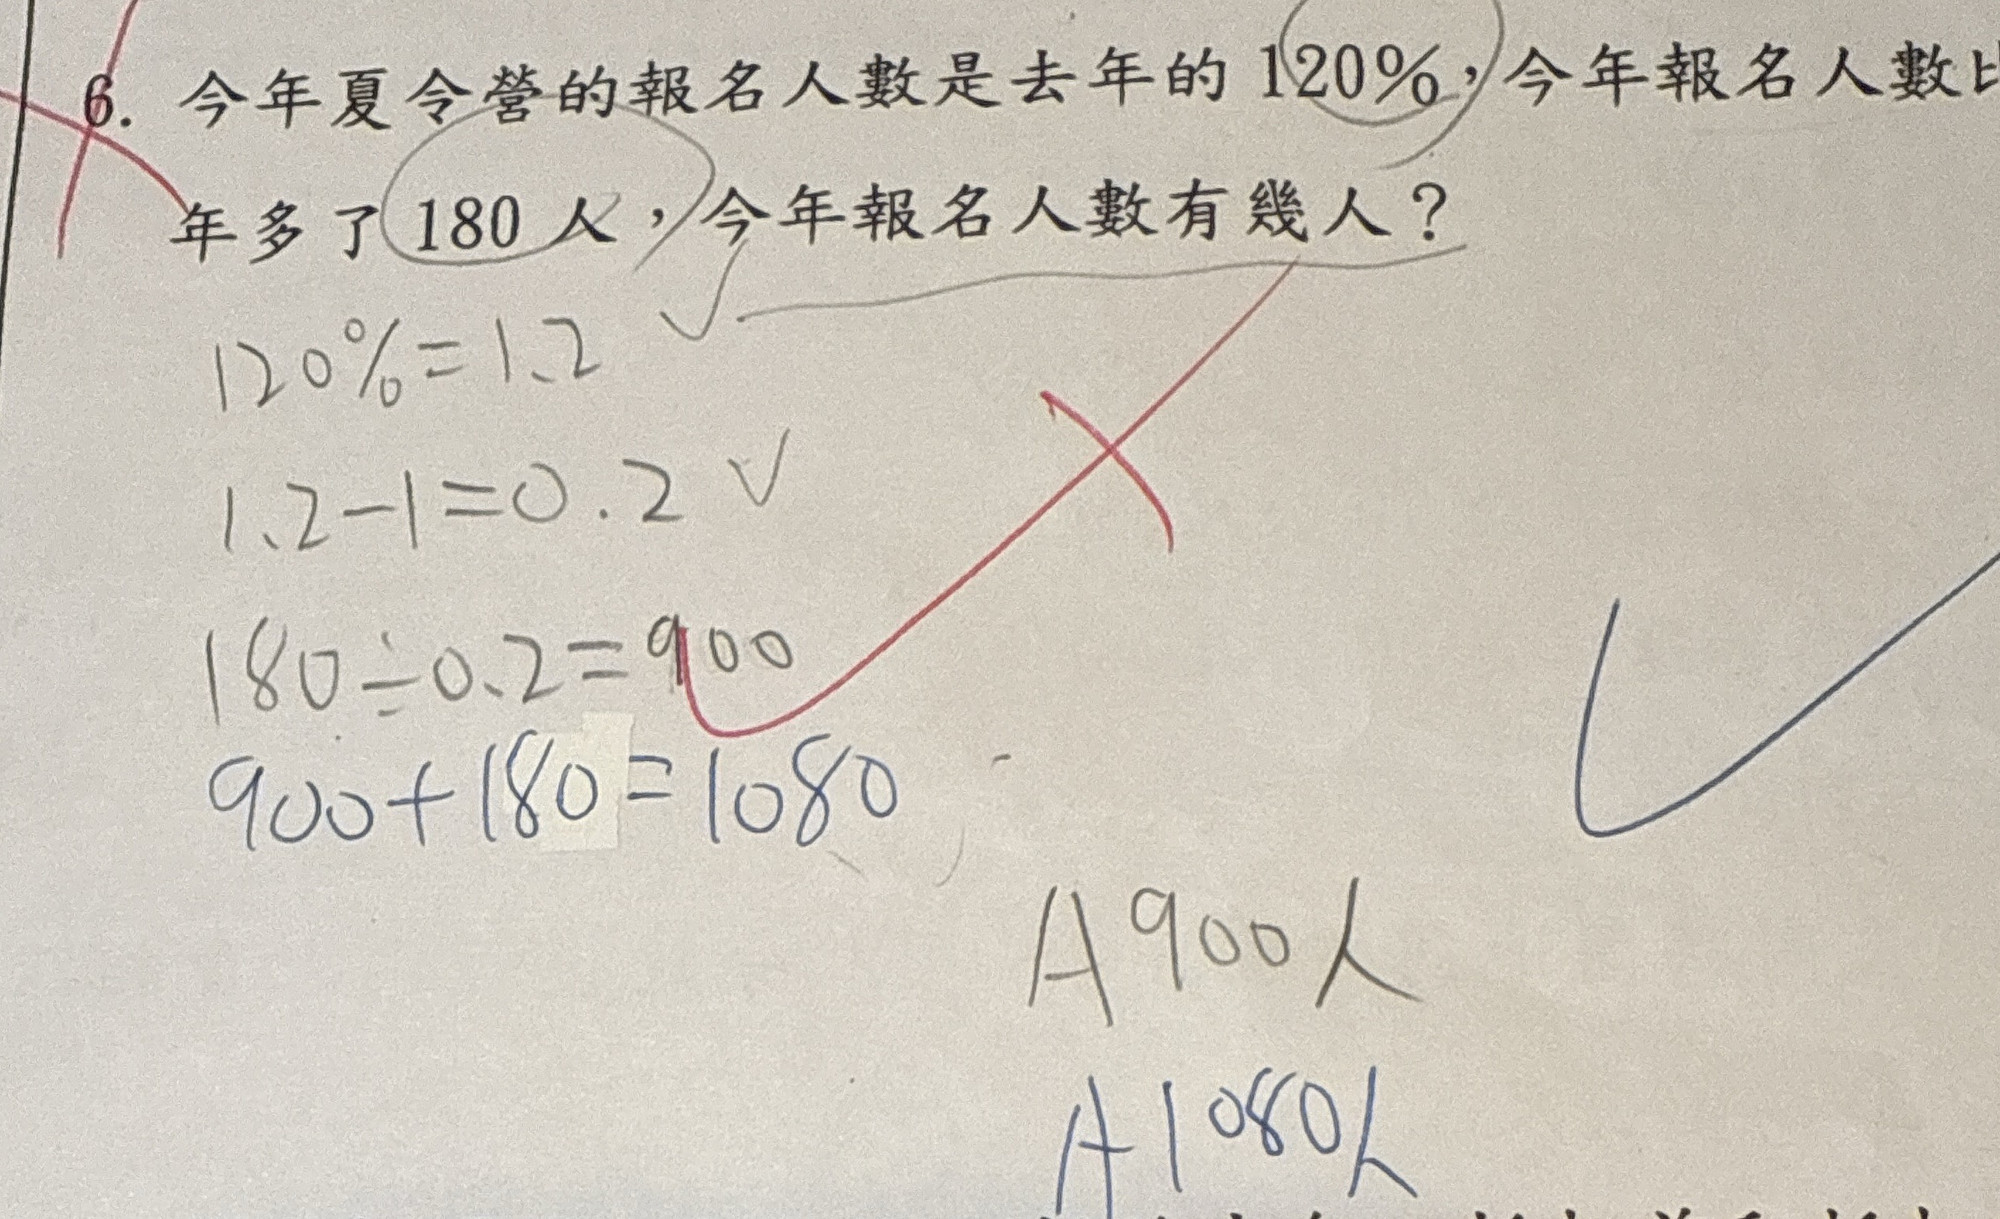 6. 今年夏令營的報名人數是去年的 120%，今年報名人數比
年多了 180 人，今年報名人數有幾人？
120%=1.2
1.2-1=0.2
180÷0.2=900
900+180=1080
A 900人
A 1080人